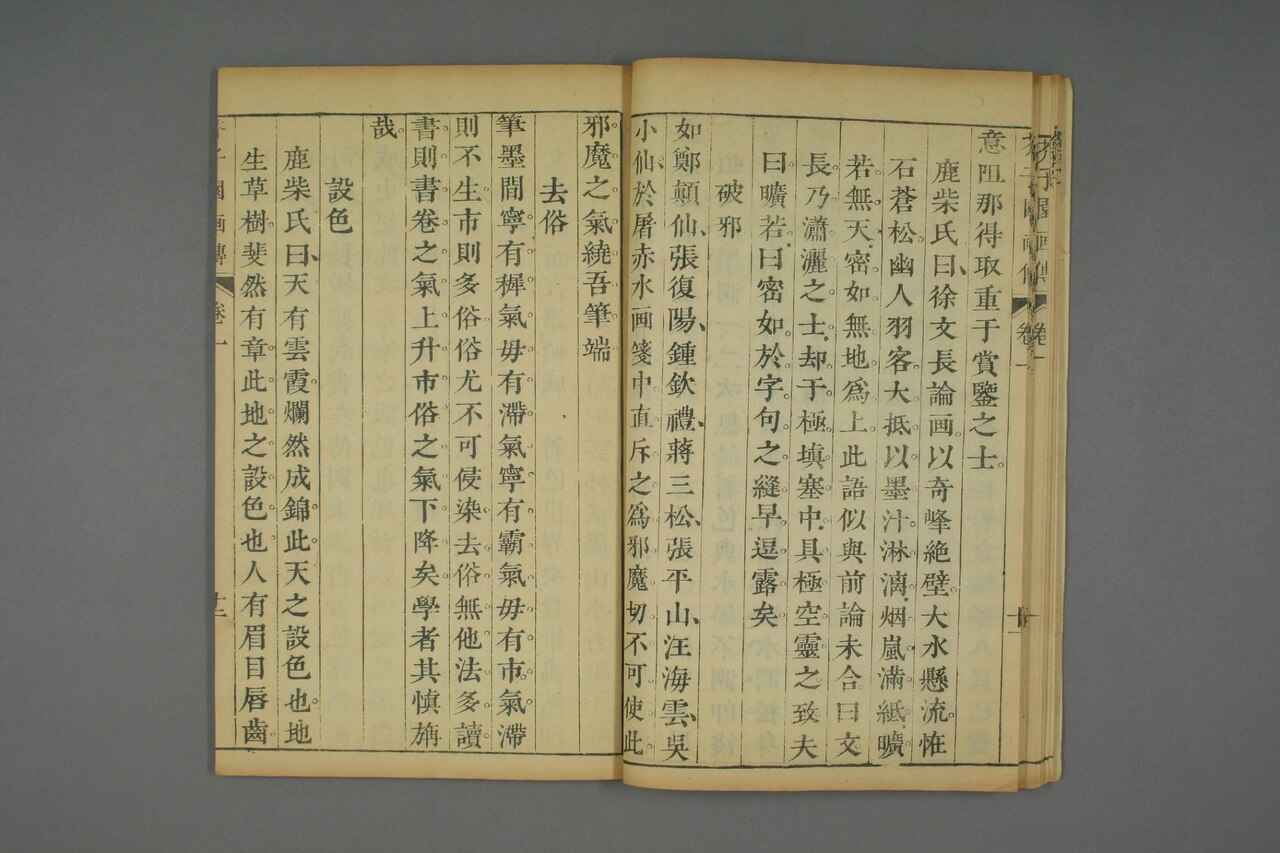 芥子園画傳 卷一
意阻那得取重于賞鑒之士。
鹿柴氏曰、徐文長論画。以奇峰絶壁。大水懸流。怪
石蒼松。幽人羽客。大抵以墨汁淋漓。烟嵐滿紙。曠
若無天。密如無地爲上。此語似與前論未合。曰文
長乃瀟灑之士。却于極填塞中。具極空靈之致。夫
曰曠若。曰密如。於字句之縫。早逗露矣
破邪
如鄭顛仙、張復陽、鍾欽禮、蔣三松、張平山、汪海雲、吳
小仙、於屠赤水画箋中。直斥之爲邪魔。切不可使此
邪魔之氣。繞吾筆端
去俗
筆墨間。寧有穉氣。毋有滯氣。寧有霸氣。毋有市氣。滯
則不生。市則多俗。俗尤不可侵染。去俗無他法。多讀
書。則書卷之氣上升。市俗之氣下降矣。學者其愼旃
哉。
設色
鹿柴氏曰、天有雲霞。爛然成錦。此天之設色也。地
生草樹。斐然有章。此地之設色也。人有眉目唇齒。
卷一